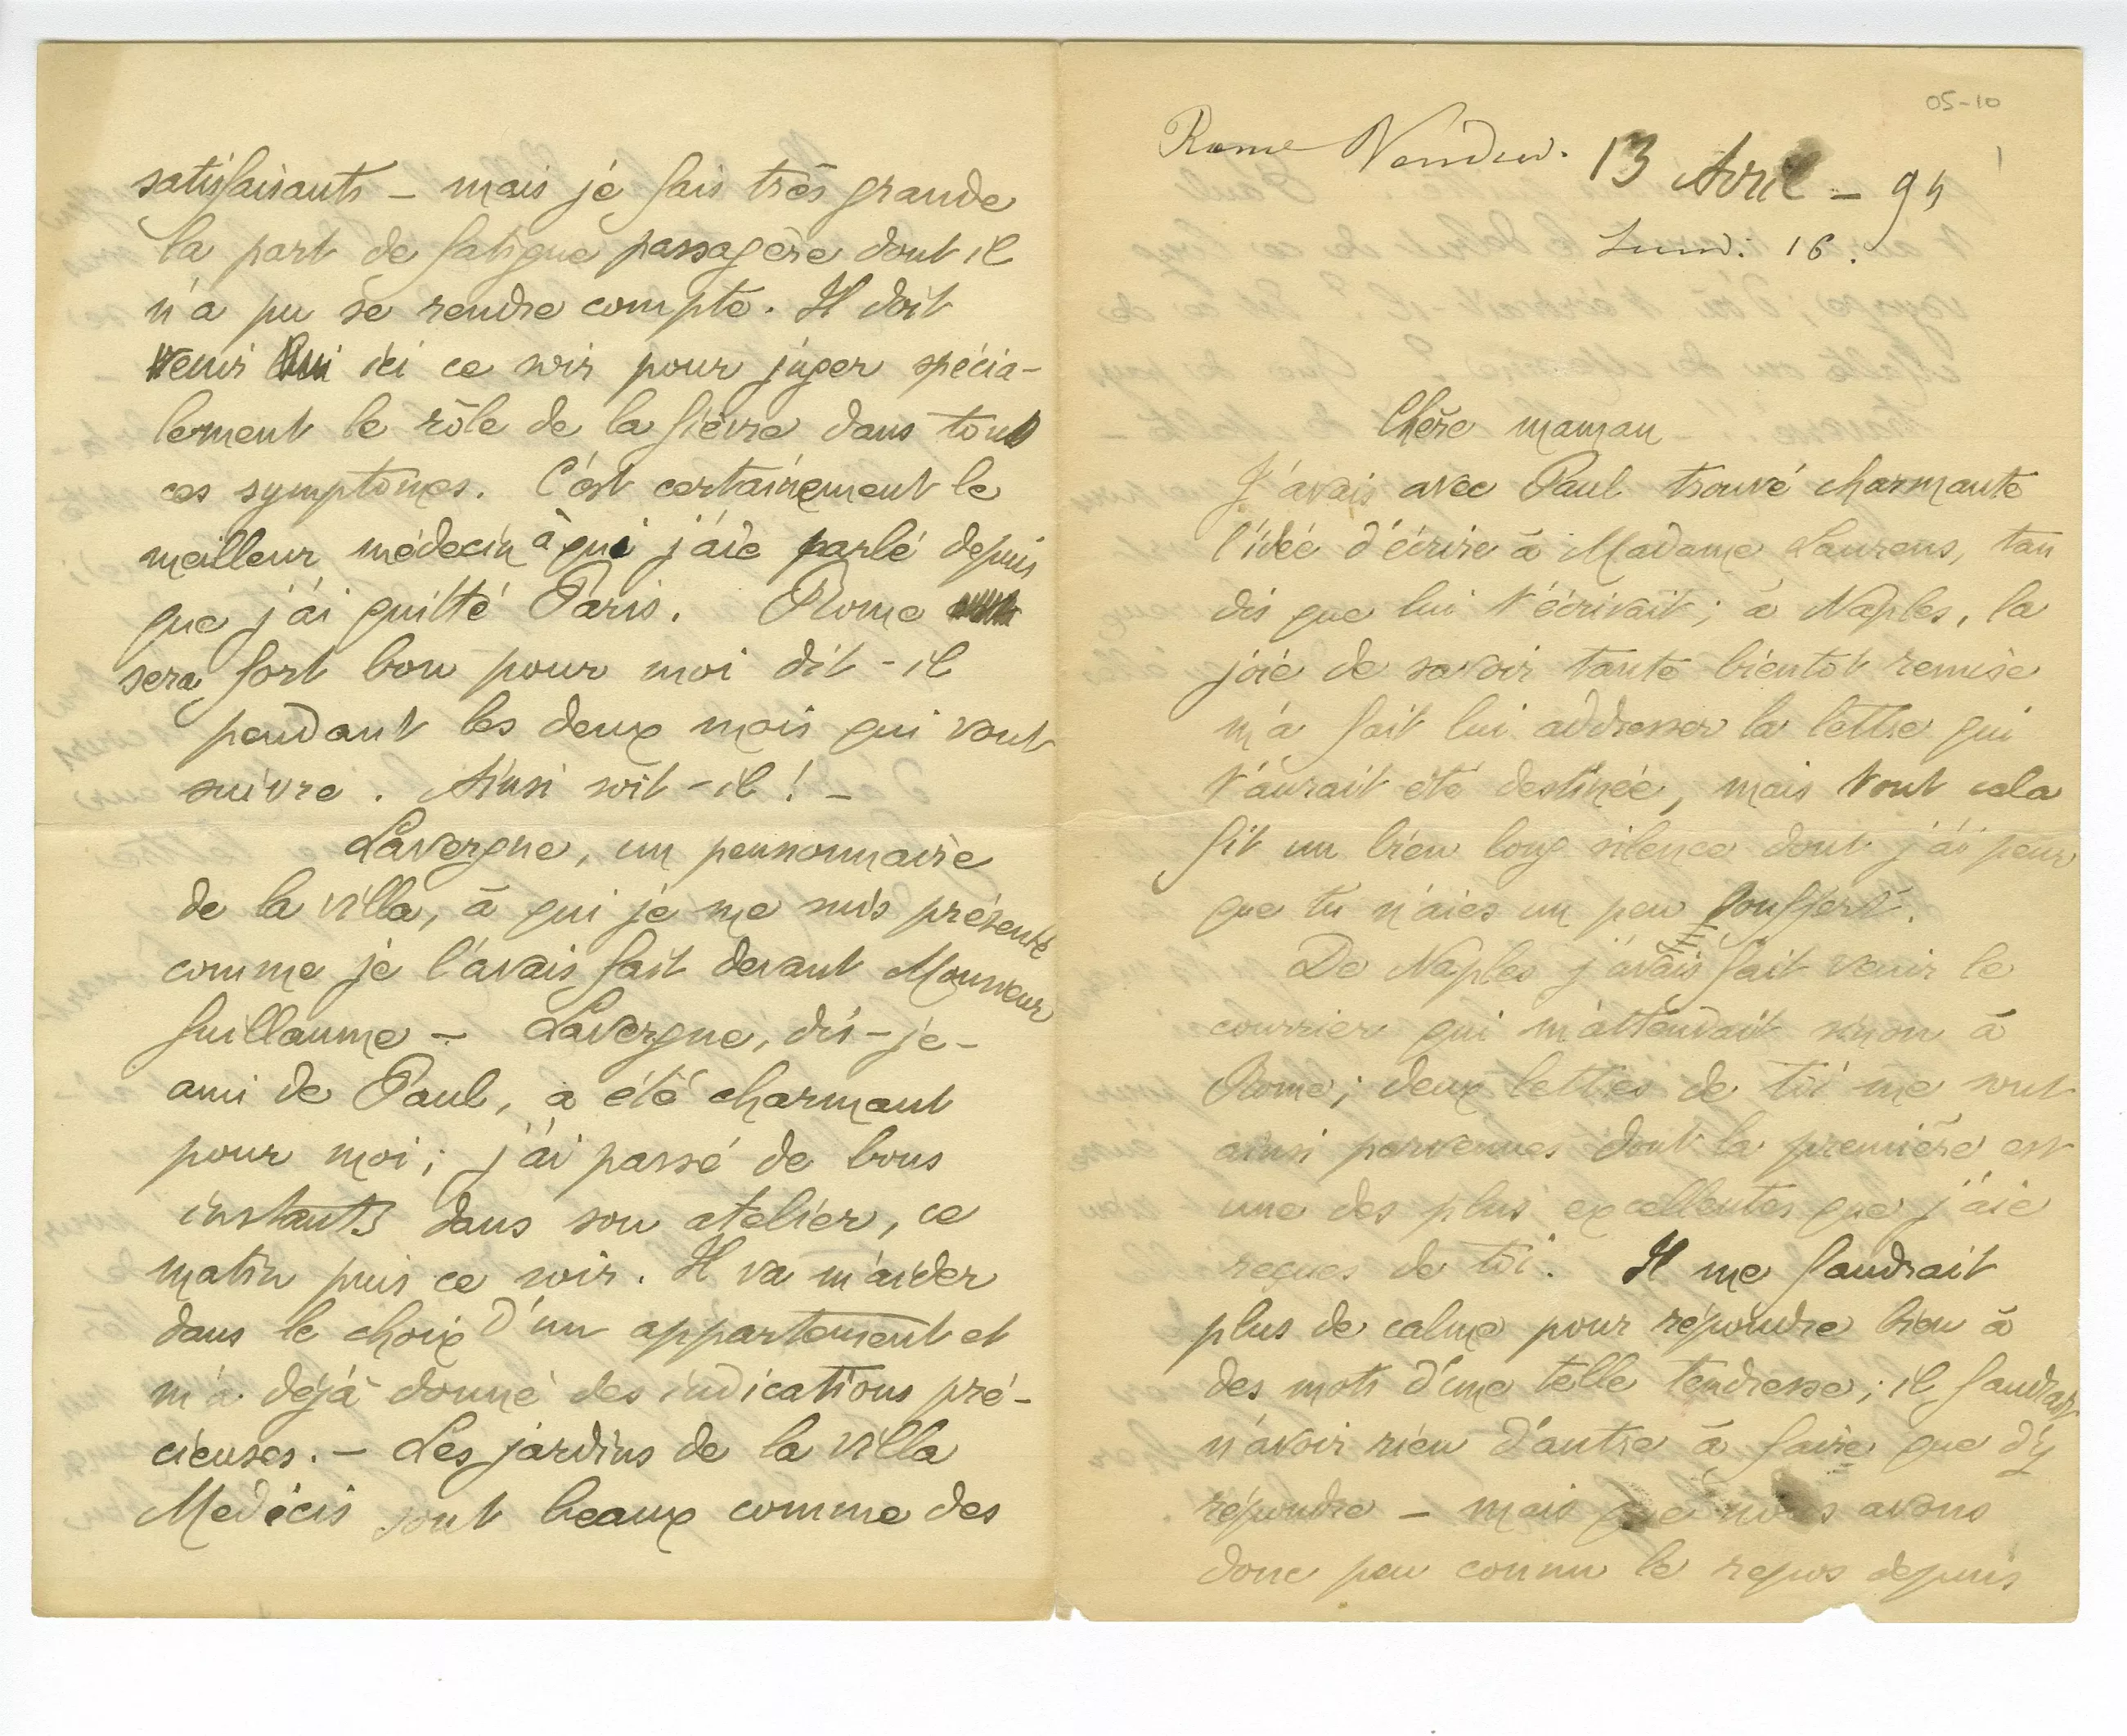 05-10
Rome Vendred. 13 Avril - 94
Lundi 16.
Chère maman
J'avais avec Paul trouvé charmante
l'idée d'écrire à Madame Laurens, tan
dis que lui t'écrivait ; à Naples, la
joie de savoir tante bientôt remise
m'a fait lui addresser la lettre qui
t'aurait été destinée, mais tout cela
fit un bien long silence dont j'ai peur
que tu n'aies un peu souffert.
De Naples j'avais fait venir le
courrier qui m'attendait sinon à
Rome ; deux lettres de toi me sont
ainsi parvenues dont la première est
une des plus excellentes que j'aie
reçues de toi. Il me faudrait
plus de calme pour répondre bien à
des mots d'une telle tendresse ; il faudrait
n'avoir rien d'autre à faire que d'y
répondre - mais que nous avons
donc peu connu le repos depuis
satisfaisants - mais je fais très grande
la part de fatigue passagère dont il
n'a pu se rendre compte. Il doit
venir ici ce soir pour juger spécia-
lement le rôle de la fièvre dans tous
ces symptômes. C'est certainement le
meilleur médecin à qui j'aie parlé depuis
que j'ai quitté Paris. Rome
sera fort bon pour moi dit-il
pendant les deux mois qui vont
suivre. Ainsi soit-il ! -
Lavergne, un pensionnaire
de la villa, à qui je me suis présenté
comme je l'avais fait devant Monsieur
Guillaume - Lavergne, dis-je -
ami de Paul, a été charmant
pour moi ; j'ai passé de bons
instants dans son atelier, ce
matin puis ce soir. Il va m'aider
dans le choix d'un appartement et
m'a déjà donné des indications pré-
cieuses. - Les jardins de la villa
Medicis sont beaux comme des